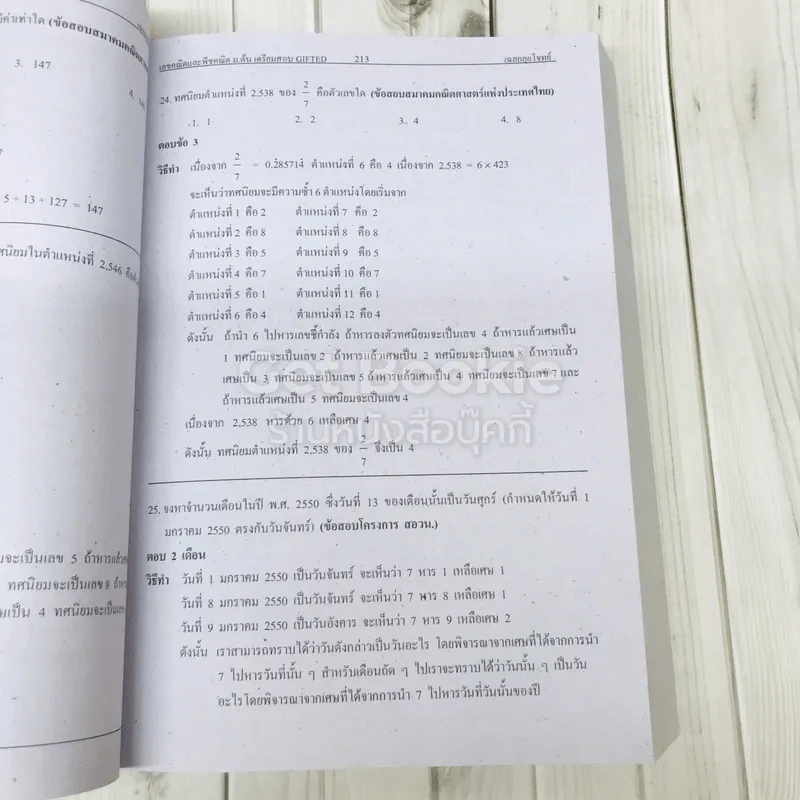 มีค่าเท่าใด (ข้อสอบสมาคมคณิตศาส
3. 147
4.
5 + 13 + 127 = 147
ศนิยมในตำแหน่งที่ 2,546
จะเป็นเลข 5 ถ้าหารแล้วเศษ
ทศนิยมจะเป็นเลข 8 ถ้าหาร
เป็น 4 ทศนิยมจะเป็นเลข
เลขคณิตและพีชคณิต ม.ต้น เตรียมสอบ GIFTED 213 เฉลยลุยโจทย์
24. ทศนิยมตำแหน่งที่ 2,538 ของ 2/7 คือตัวเลขใด (ข้อสอบสมาคมคณิตศาสตร์แห่งประเทศไทย)
1. 1 2. 2 3. 4 4. 8
ตอบข้อ 3
วิธีทำ เนื่องจาก 2/7 = 0.2̇85714̇ ตำแหน่งที่ 6 คือ 4 เนื่องจาก 2,538 = 6 × 423
จะเห็นว่าทศนิยมจะมีความซ้ำ 6 ตำแหน่งโดยเริ่มจาก
ตำแหน่งที่ 1 คือ 2 ตำแหน่งที่ 7 คือ 2
ตำแหน่งที่ 2 คือ 8 ตำแหน่งที่ 8 คือ 8
ตำแหน่งที่ 3 คือ 5 ตำแหน่งที่ 9 คือ 5
ตำแหน่งที่ 4 คือ 7 ตำแหน่งที่ 10 คือ 7
ตำแหน่งที่ 5 คือ 1 ตำแหน่งที่ 11 คือ 1
ตำแหน่งที่ 6 คือ 4 ตำแหน่งที่ 12 คือ 4
ดังนั้น ถ้านำ 6 ไปหารเลขชี้กำลัง ถ้าหารลงตัวทศนิยมจะเป็นเลข 4 ถ้าหารแล้วเศษเป็น
1 ทศนิยมจะเป็นเลข 2 ถ้าหารแล้วเศษเป็น 2 ทศนิยมจะเป็นเลข 8 ถ้าหารแล้ว
เศษเป็น 3 ทศนิยมจะเป็นเลข 5 ถ้าหารแล้วเศษเป็น 4 ทศนิยมจะเป็นเลข 7 และ
ถ้าหารแล้วเศษเป็น 5 ทศนิยมจะเป็นเลข 4
Get Bookie
เนื่องจาก 2,538 หารด้วย 6 เหลือเศษ 4
ร้านหนังสือบุ๊คกี้
ดังนั้น ทศนิยมตำแหน่งที่ 2,538 ของ 2/7 จึงเป็น 4
25. จงหาจำนวนเดือนในปี พ.ศ. 2550 ซึ่งวันที่ 13 ของเดือนนั้นเป็นวันศุกร์ (กำหนดให้วันที่ 1
มกราคม 2550 ตรงกับวันจันทร์) (ข้อสอบโครงการ สอวน.)
ตอบ 2 เดือน
วิธีทำ วันที่ 1 มกราคม 2550 เป็นวันจันทร์ จะเห็นว่า 7 หาร 1 เหลือเศษ 1
วันที่ 8 มกราคม 2550 เป็นวันจันทร์ จะเห็นว่า 7 หาร 8 เหลือเศษ 1
วันที่ 9 มกราคม 2550 เป็นวันอังคาร จะเห็นว่า 7 หาร 9 เหลือเศษ 2
ดังนั้น เราสามารถทราบได้ว่าวันดังกล่าวเป็นวันอะไร โดยพิจารณาจากเศษที่ได้จากการนำ
7 ไปหารวันที่นั้น ๆ สำหรับเดือนถัด ๆ ไปเราจะทราบได้ว่าวันนั้น ๆ เป็นวัน
อะไรโดยพิจารณาจากเศษที่ได้จากการนำ 7 ไปหารวันที่วันนั้นของปี